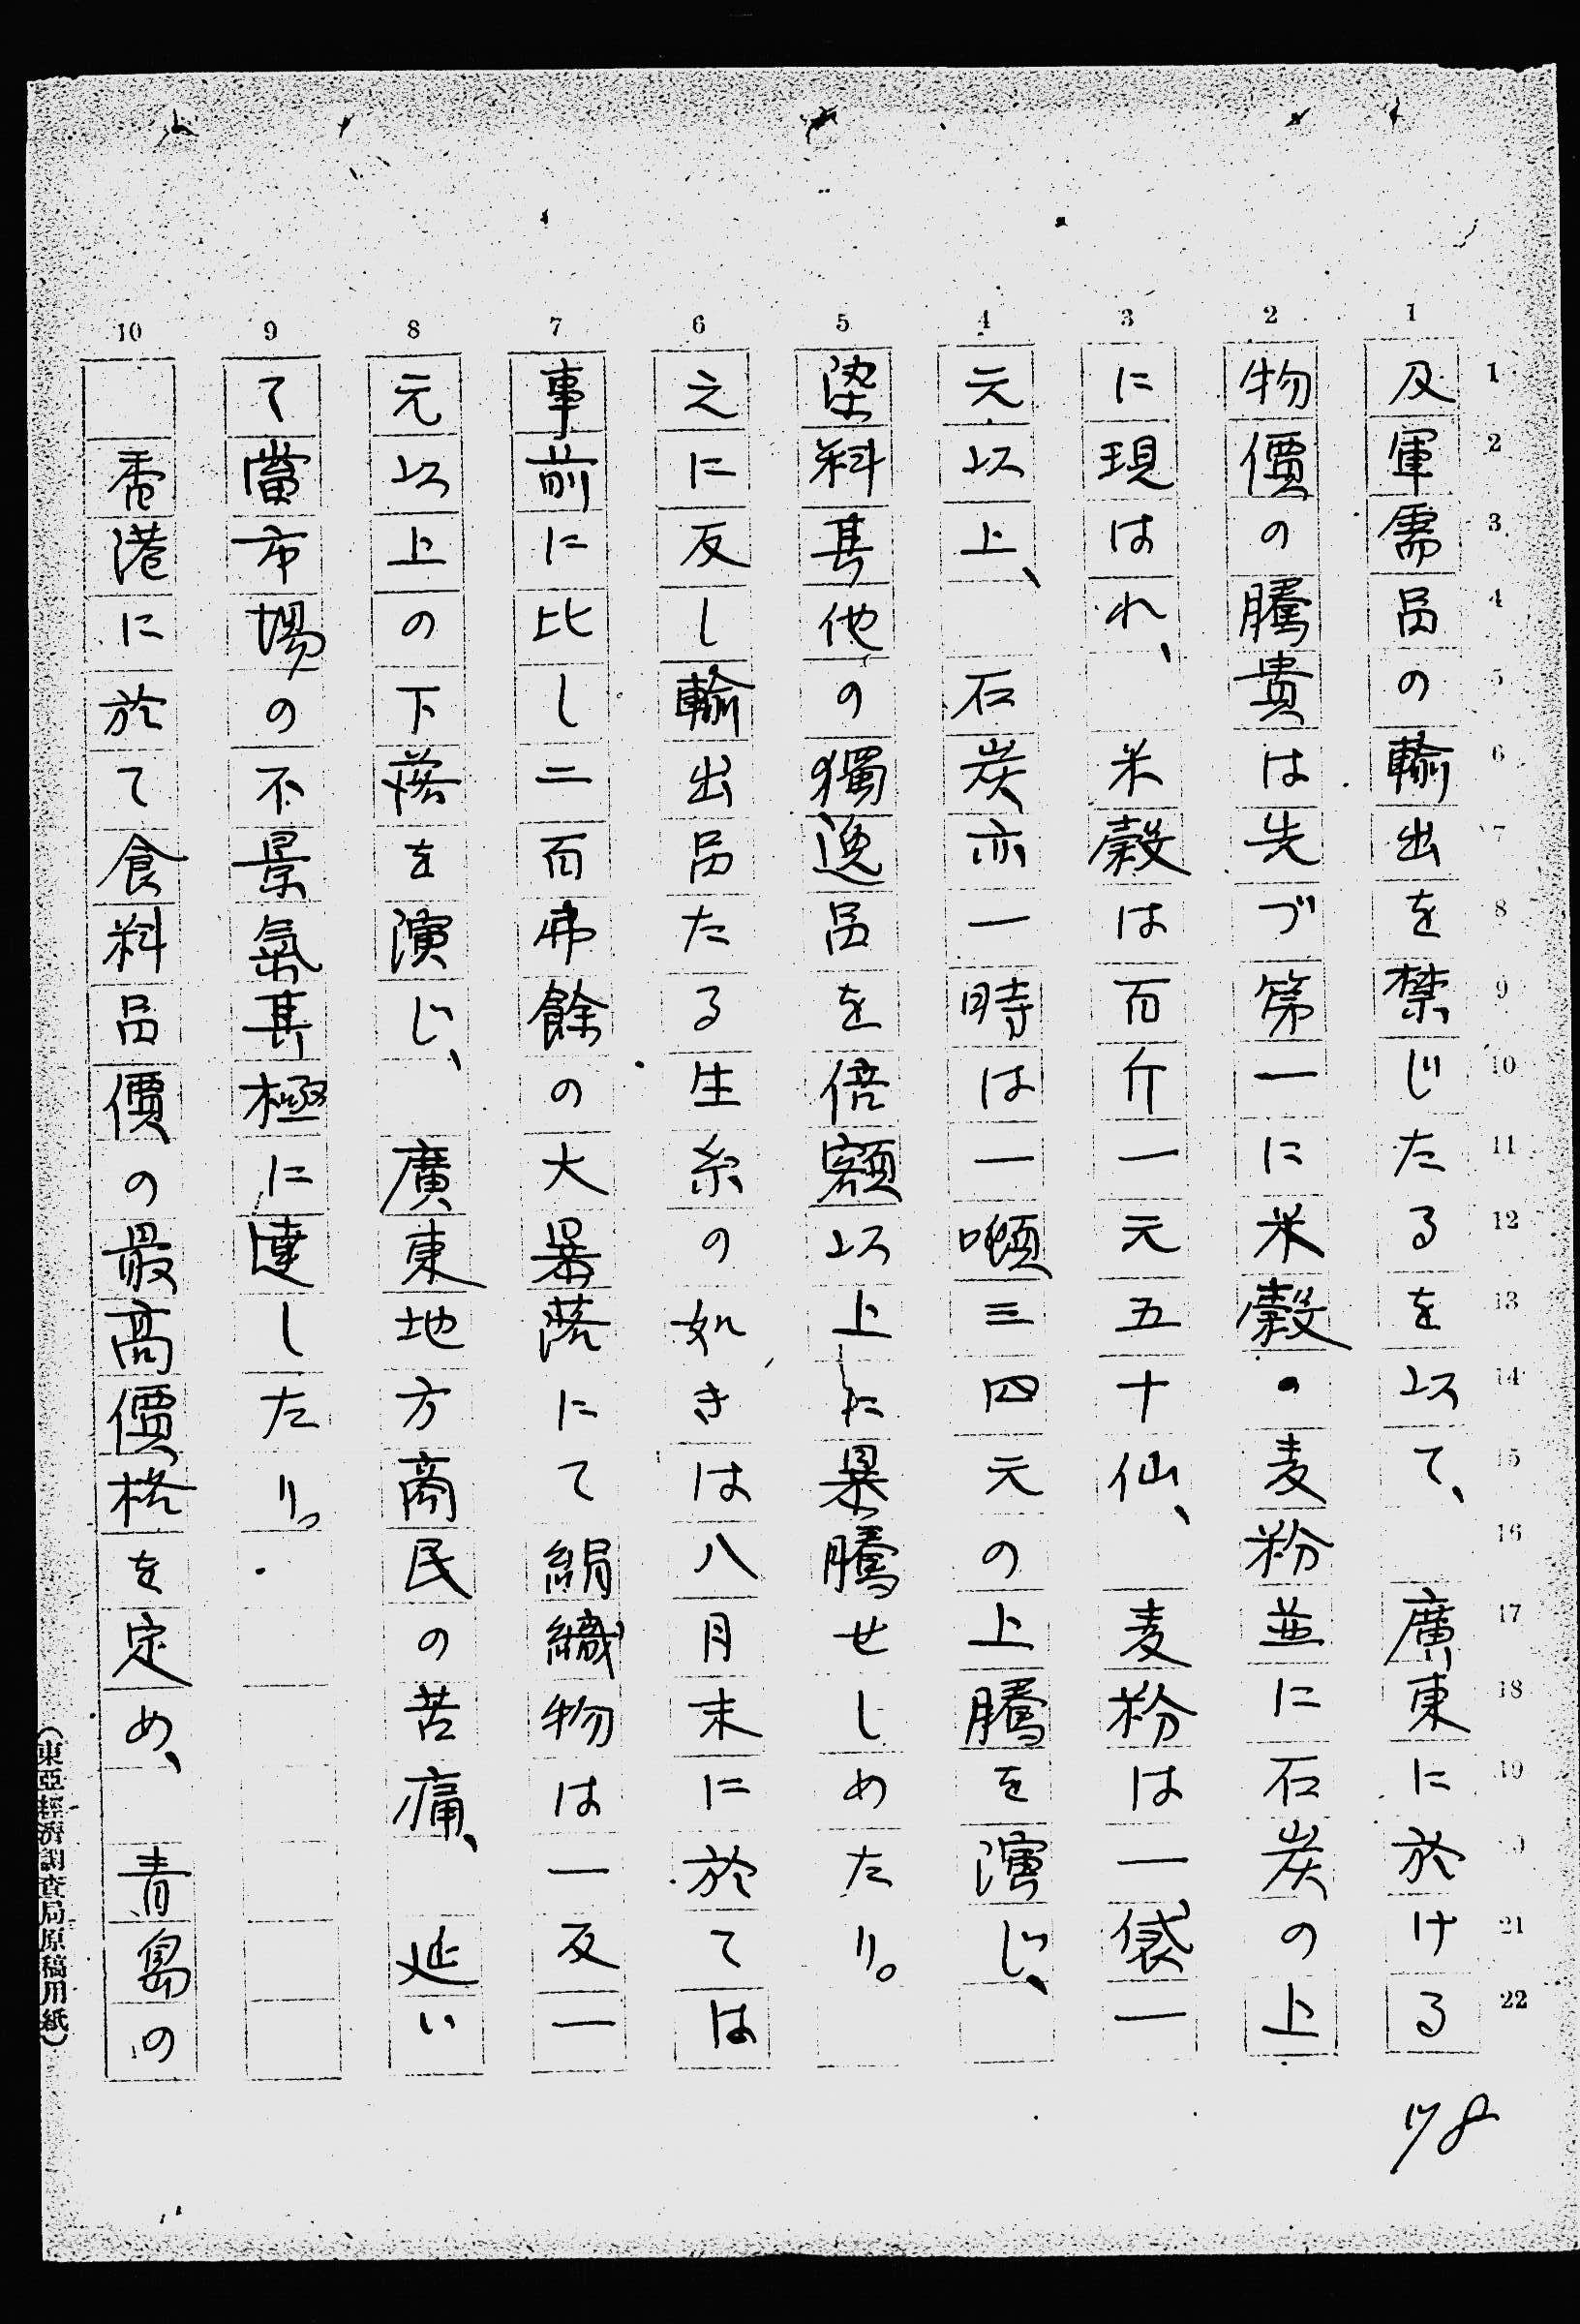 及軍需品の輸出を禁じたるを以て、　廣東に於ける
物價の騰貴は先づ第一に米穀・麦粉並に石炭の上
に現はれ、　米穀は百斤一元五十仙、　麦粉は一袋一
元以上、　石炭亦一時は一噸三四元の上騰を演じ、
染料其他の獨逸品を倍額以上に暴騰せしめたり。
之に反し輸出品たる生糸の如きは八月末に於ては
事前に比し二百弗餘の大暴落にて絹織物は一反一
元以上の下落を演じ、　廣東地方商民の苦痛、　延い
て當市場の不景氣其極に達したり。
　香港に於て食料品價の最高價格を定め、　青島の
178
1 2 3 4 5 6 7 8 9 10
1 2 3 4 5 6 7 8 9 10 11 12 13 14 15 16 17 18 19 20 21 22
（東亞經濟調査局原稿用紙）